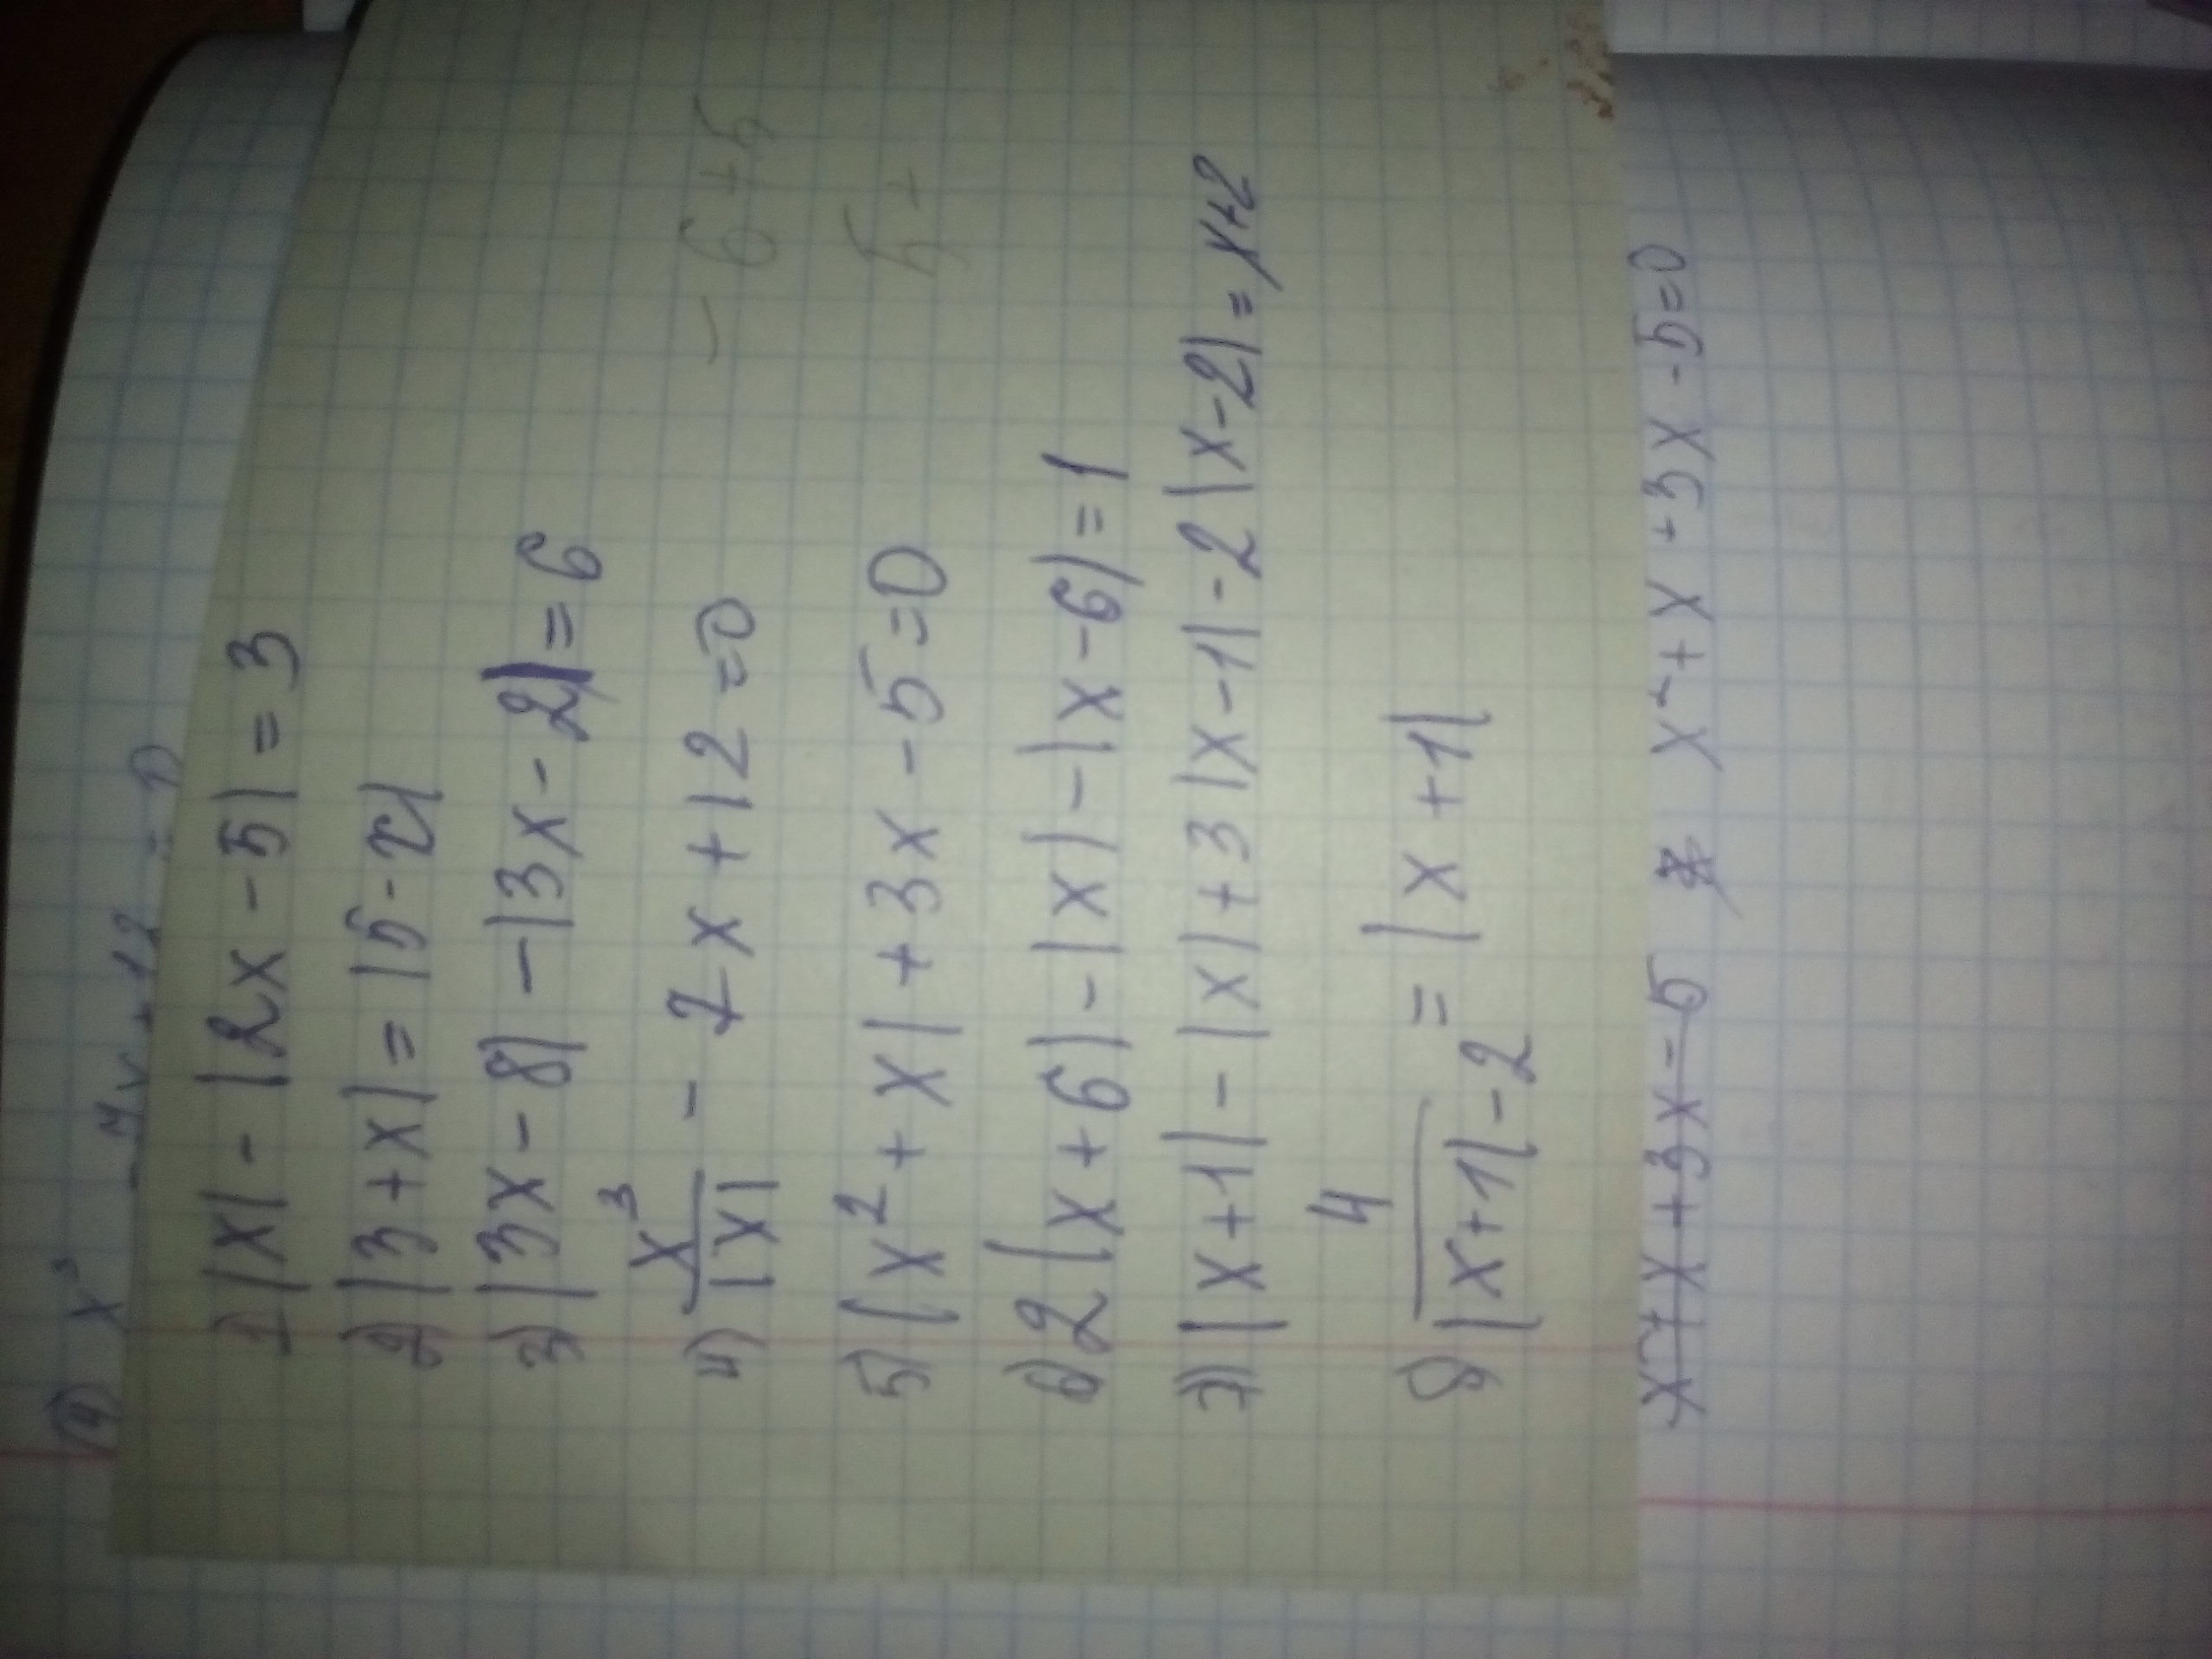 4) x³ - 7x + 12 = 0
1) |x| - |2x - 5| = 3
2) |3 + x| = |5 - x|
3) |3x - 8| - |3x - 2| = 6
4) x³/|x| - 7x + 12 = 0
- 6 + 5
5) |x² + x| + 3x - 5 = 0
6) 2|x + 6| - |x| - |x - 6| = 1
7) |x + 1| - |x| + 3|x - 1| - 2|x - 2| = x + 2
8) 4/(|x + 1| - 2) = |x + 1|
x² + x + 3x - 5 x² + x + 3x - 5 = 0